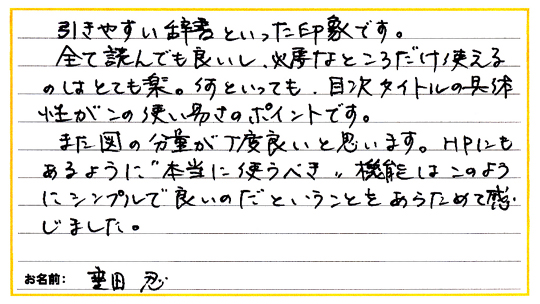 引きやすい辞書といった印象です。
全て読んでも良いし、必要なところだけ使える
のはとても楽。何といっても、目次タイトルの具体
性がこの使い易さのポイントです。
また図の分量が丁度良いと思います。HPにも
あるように"本当に使うべき"機能はこのよう
にシンプルで良いのだということをあらためて感
じました。
お名前: 田 忍